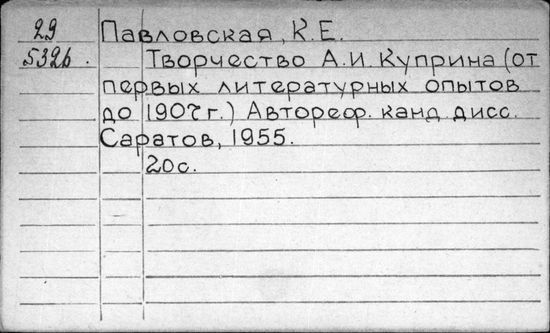 29 Павловская, К.Е.
5326. Творчество А.И. Куприна (от
первых литературных опытов
до 1907 г.) Автореф. канд. дисс.
Саратов, 1955.
20 с.